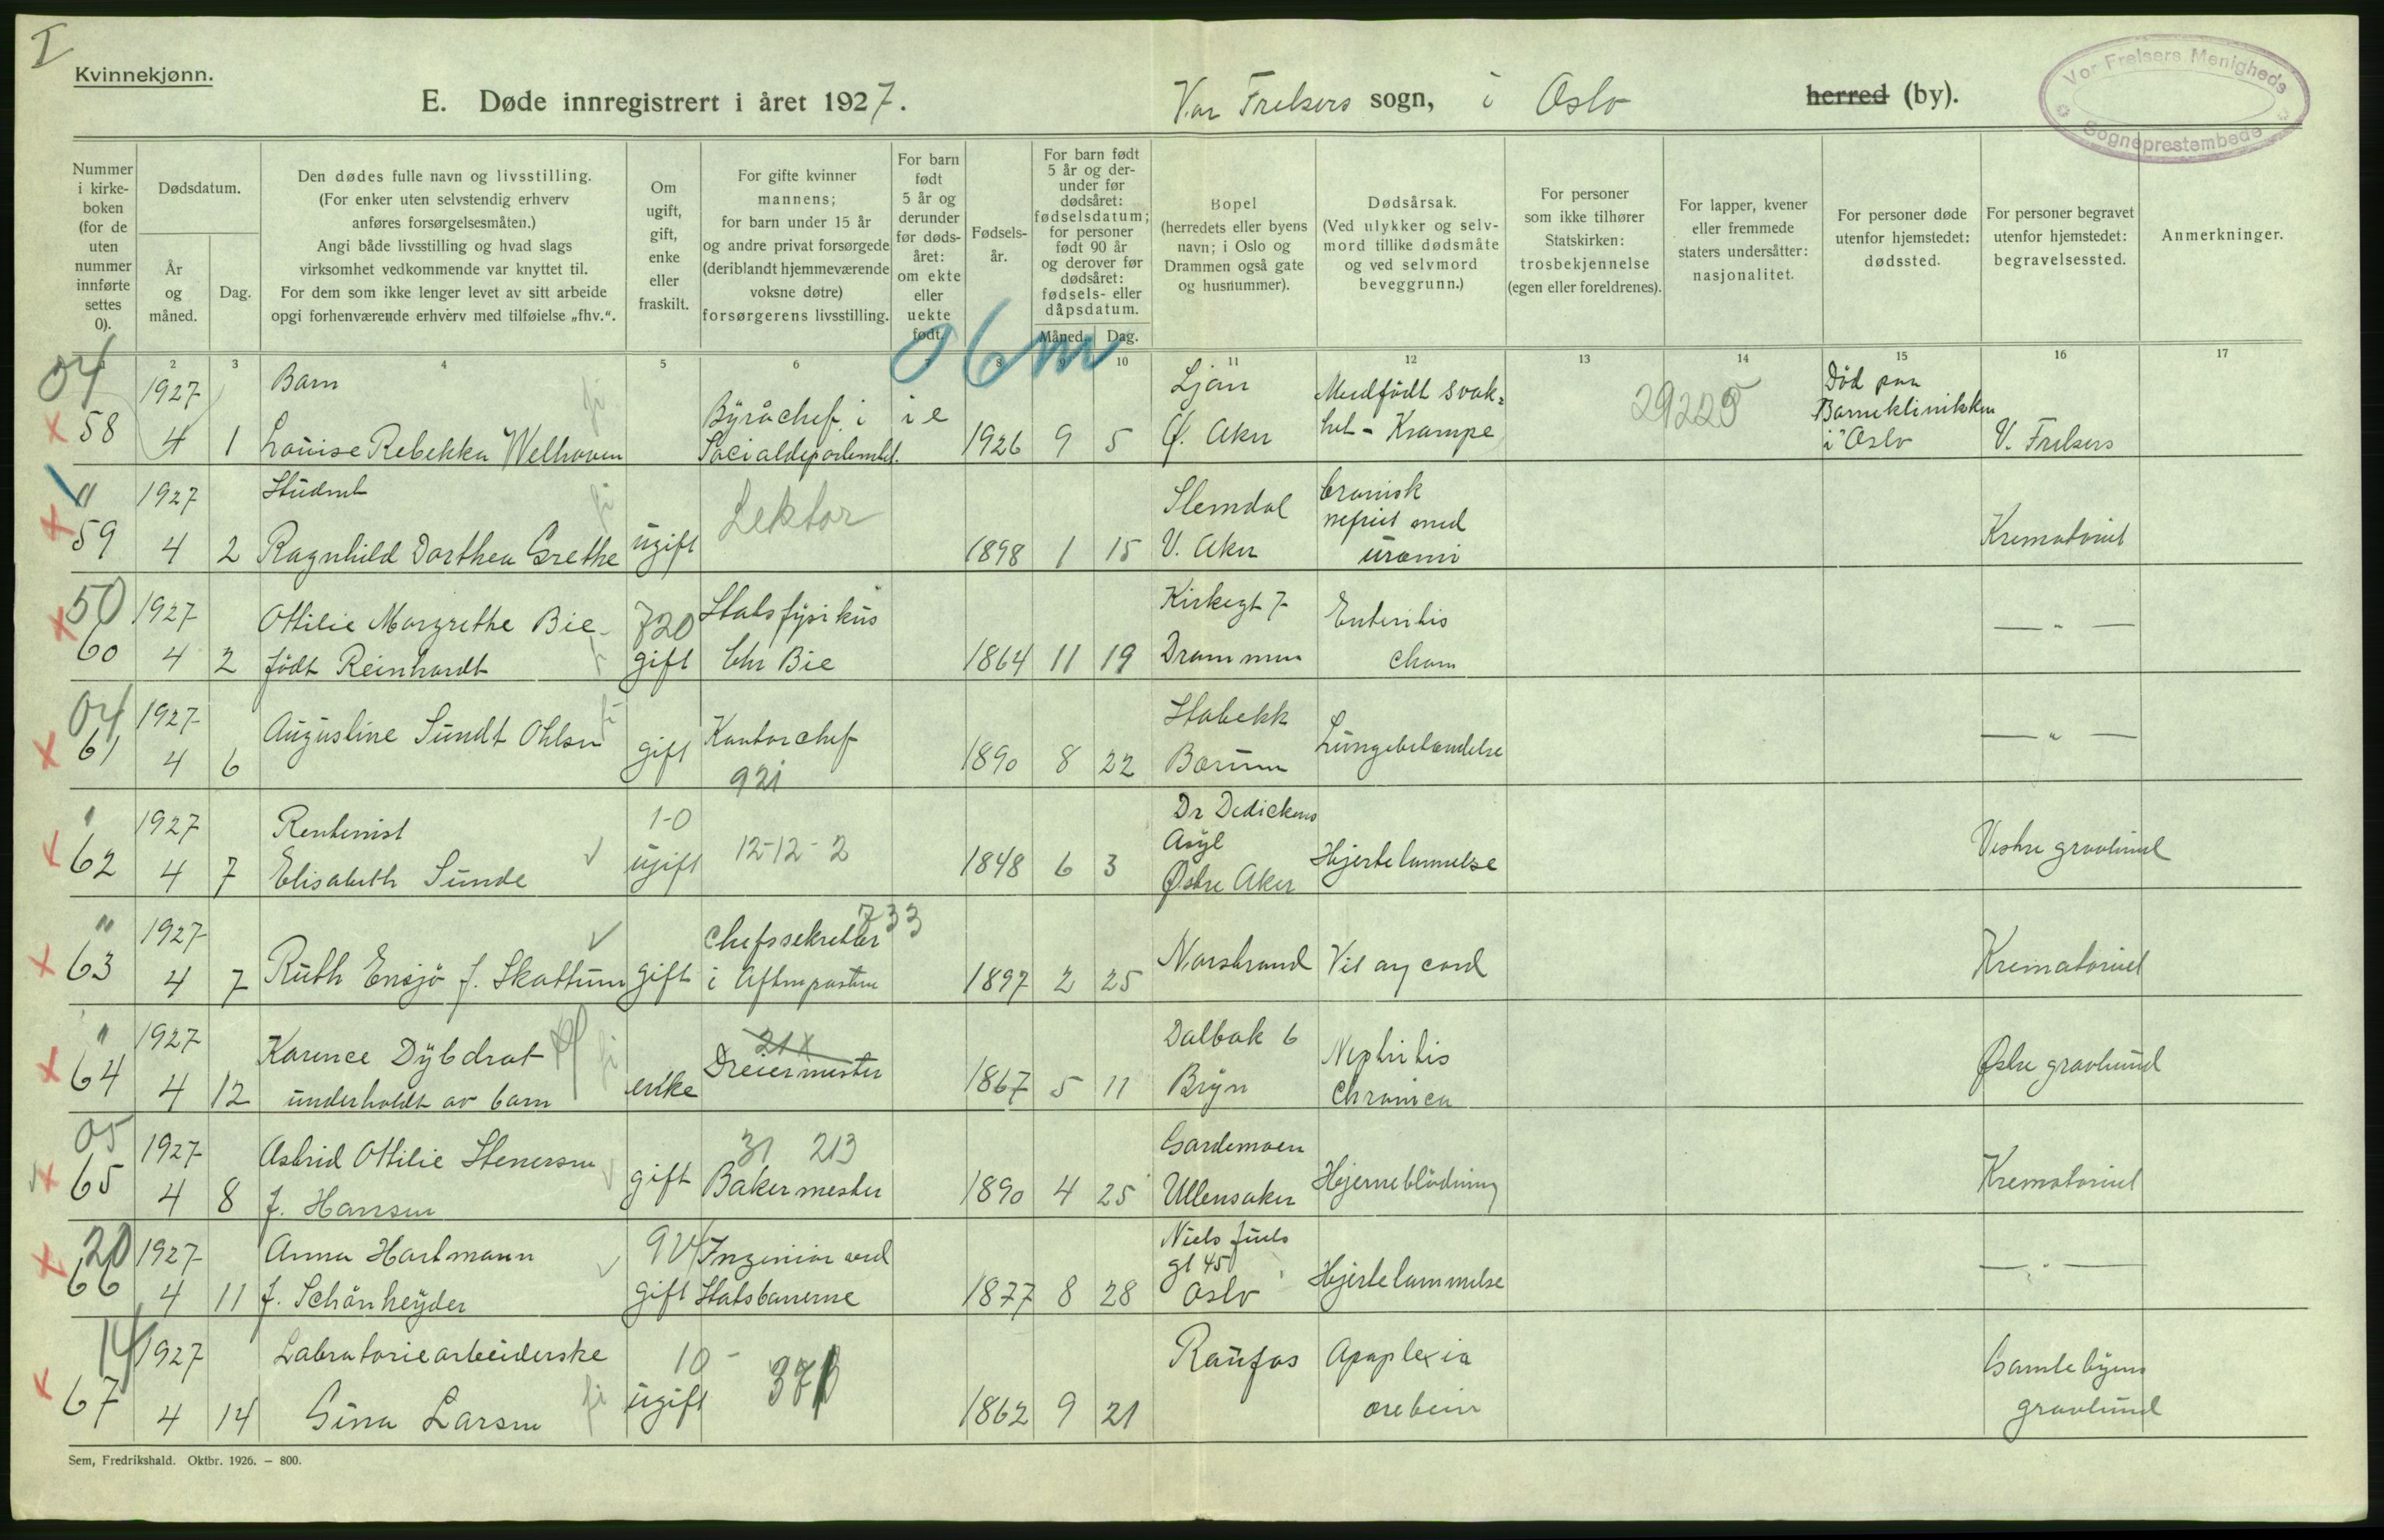 I
Kvinnekjønn.
E. Døde innregistrert i året 1927.
Vor Frelsers sogn, i Oslo herred (by).
Vor Frelsers Menigheds
Sogneprestembede
Nummer i kirke- boken (for de uten nummer innførte settes 0).
Dødsdatum.
År og måned.
Dag.
Den dødes fulle navn og livsstilling.
(For enker uten selvstendig erhverv
anføres forsørgelsesmåten.)
Angi både livsstilling og hvad slags
virksomhet vedkommende var knyttet til.
For dem som ikke lenger levet av sitt arbeide
opgi forhenværende erhverv med tilføielse „fhv.“.
Om ugift, gift, enke eller fraskilt.
For gifte kvinner
mannens;
for barn under 15 år
og andre privat forsørgede
(deriblandt hjemmeværende
voksne døtre)
forsørgerens livsstilling.
For barn født 5 år og derunder før døds- året: om ekte eller uekte født.
Fødsels- år.
For barn født 5 år og der- under før dødsåret: fødselsdatum; for personer født 90 år og derover før dødsåret: fødsels- eller dåpsdatum.
Måned. Dag.
Bopel
(herredets eller byens
navn; i Oslo og
Drammen også gate
og husnummer).
Dødsårsak.
(Ved ulykker og selv-
mord tillike dødsmåte
og ved selvmord
beveggrunn.)
For personer
som ikke tilhører
Statskirken:
trosbekjennelse
(egen eller foreldrenes).
For lapper, kvener
eller fremmede
staters undersåtter:
nasjonalitet.
For personer døde
utenfor hjemstedet:
dødssted.
For personer begravet
utenfor hjemstedet:
begravelsessted.
Anmerkninger.
2 3 4 5 6 8 9 10 11 12 13 14 15 16 17
04 06m
58 1927 4 1 Barn
Louise Rebekka Welhaven
Byråchef i
Socialdepartementet. i e 1926 9 5 Ljan
Ø. Aker Medfödt svak-
het - Krampe 29225 Död paa
Barneklinikken
i Oslo V. Frelsers
59 1927 4 2 Student
Ragnhild Dorthea Grethe ugift Lektor 1898 1 15 Slemdal
V. Aker Cronisk
nefrit med
uræmi Krematoriet
50
60 1927 4 2 Ottilie Margrethe Bie
födt Reinhardt 720
gift Statsfysikus
Chr Bie 1864 11 19 Kirkegt 7
Drammen Enteritis
chron — " —
04
61 1927 4 6 Augustine Sundt Ohlsen gift Kontorchef
921 1890 8 22 Stabekk
Bærum Lungebetændelse — " —
62 1927 4 7 Rentenist
Elisabeth Sunde 1-0
ugift 12-12-2 1848 6 3 Dr Dedichens
Asyl
Østre Aker Hjertelammelse Vestre gravlund
63 1927 4 7 Ruth Ensjö f. Skattum gift 733
Chefssekretær
i Aftenposten 1897 2 25 Norstrand Vit org cord Krematoriet
64 1927 4 12 Karence Dybdrat
underholdt av barn enke 21x
Dreiermester 1867 5 11 Dalbak 6
Bryn Nephritis
Chronica Østre gravlund
05
65 1927 4 8 Astrid Ottilie Stenersen
f. Hansen gift 31 213
Bakermester 1890 4 25 Gardemoen
Ullensaker Hjerneblödning Krematoriet
20
66 1927 4 11 Anna Hartmann
f. Schönheyder gift Ingeniör ved
Statsbanerne 1877 8 28 Niels Juels
gt 45
Oslo Hjertelammelse — " —
14
67 1927 4 14 Labratoriearbeiderske
Gina Larsen 10-
ugift 1862 9 21 Raufos Apoplexia
cerebri Gamlebyens
gravlund
Sem, Fredrikshald. Oktbr. 1926. – 800.